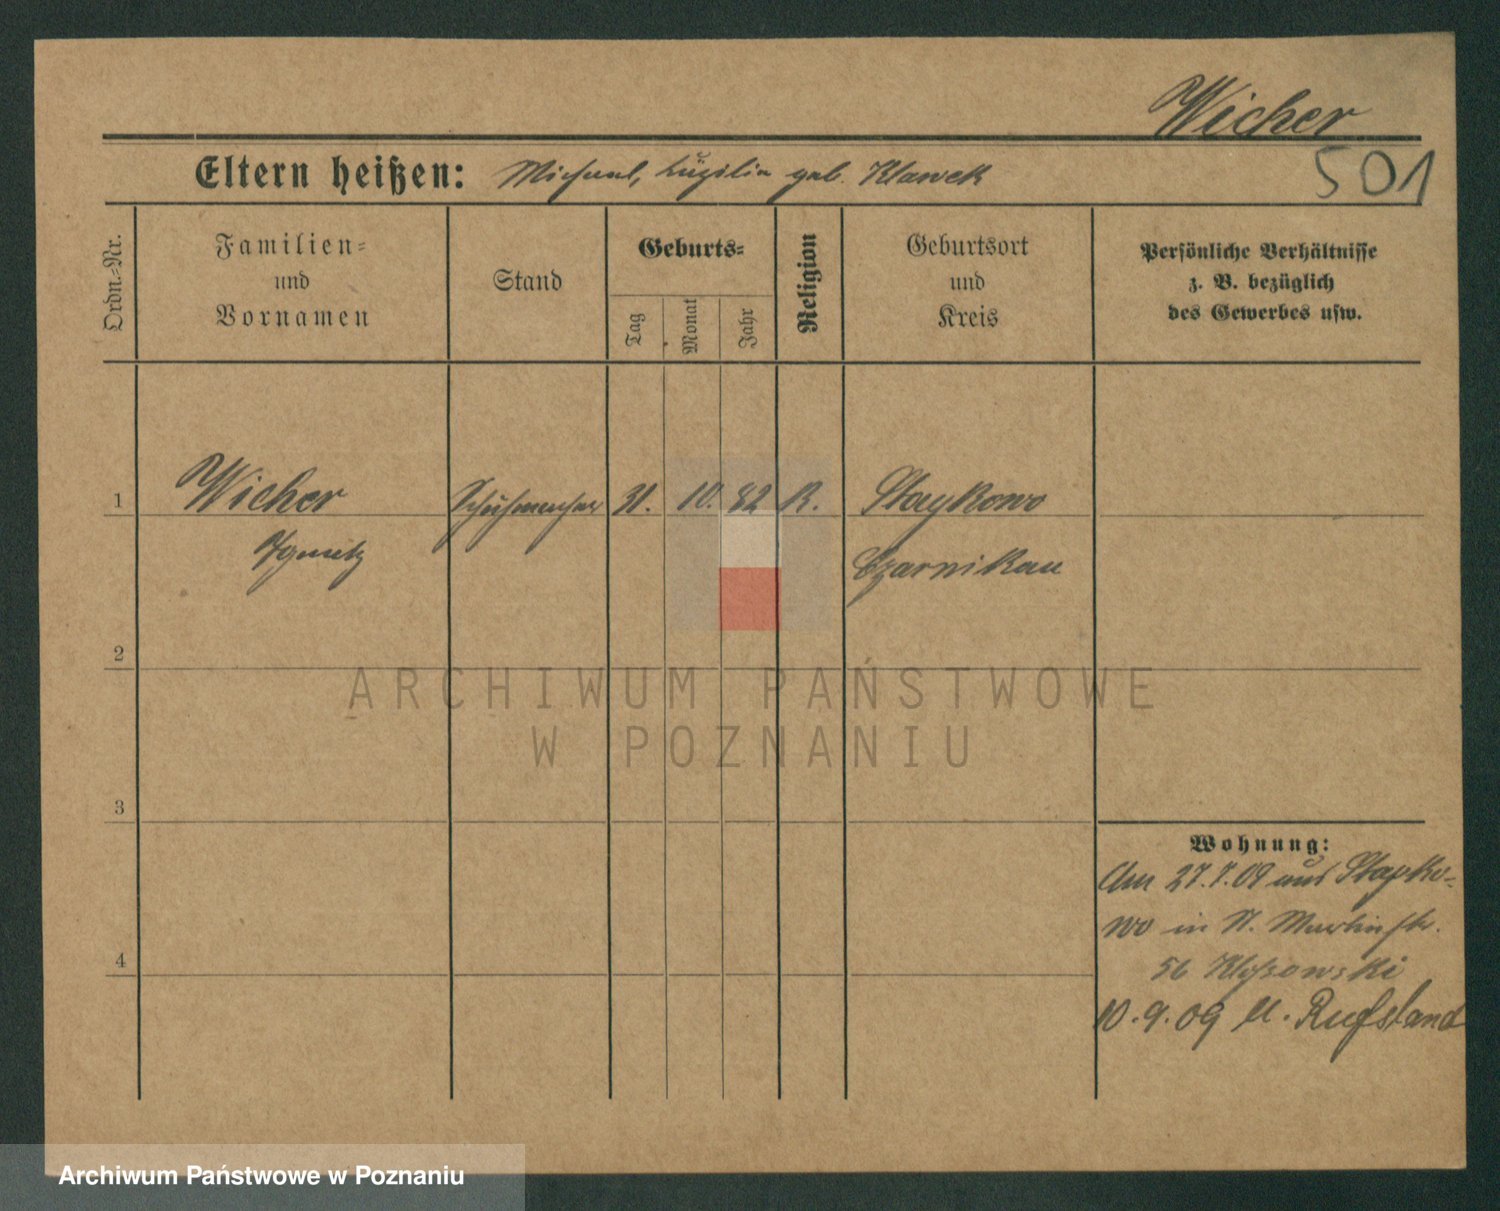 Wicher
Eltern heißen: Michael, geb. Klawek
501
Ordn.-Nr.
Familien-
und
Vornamen
Stand
Geburts-
Tag
Monat
Jahr
Religion
Geburtsort
und
Kreis
Persönliche Verhältnisse
z. B. bezüglich
des Gewerbes usw.
1
Wicher
Ignatz
Schuhmacher
31.
10.
82
Czarnikau
2
ARCHIWUM PAŃSTWOWE
W POZNANIU
3
4
Wohnung:
Am 27.7.09 aus
wo in St. Martinstr.
56
10.9.09
Archiwum Państwowe w Poznaniu